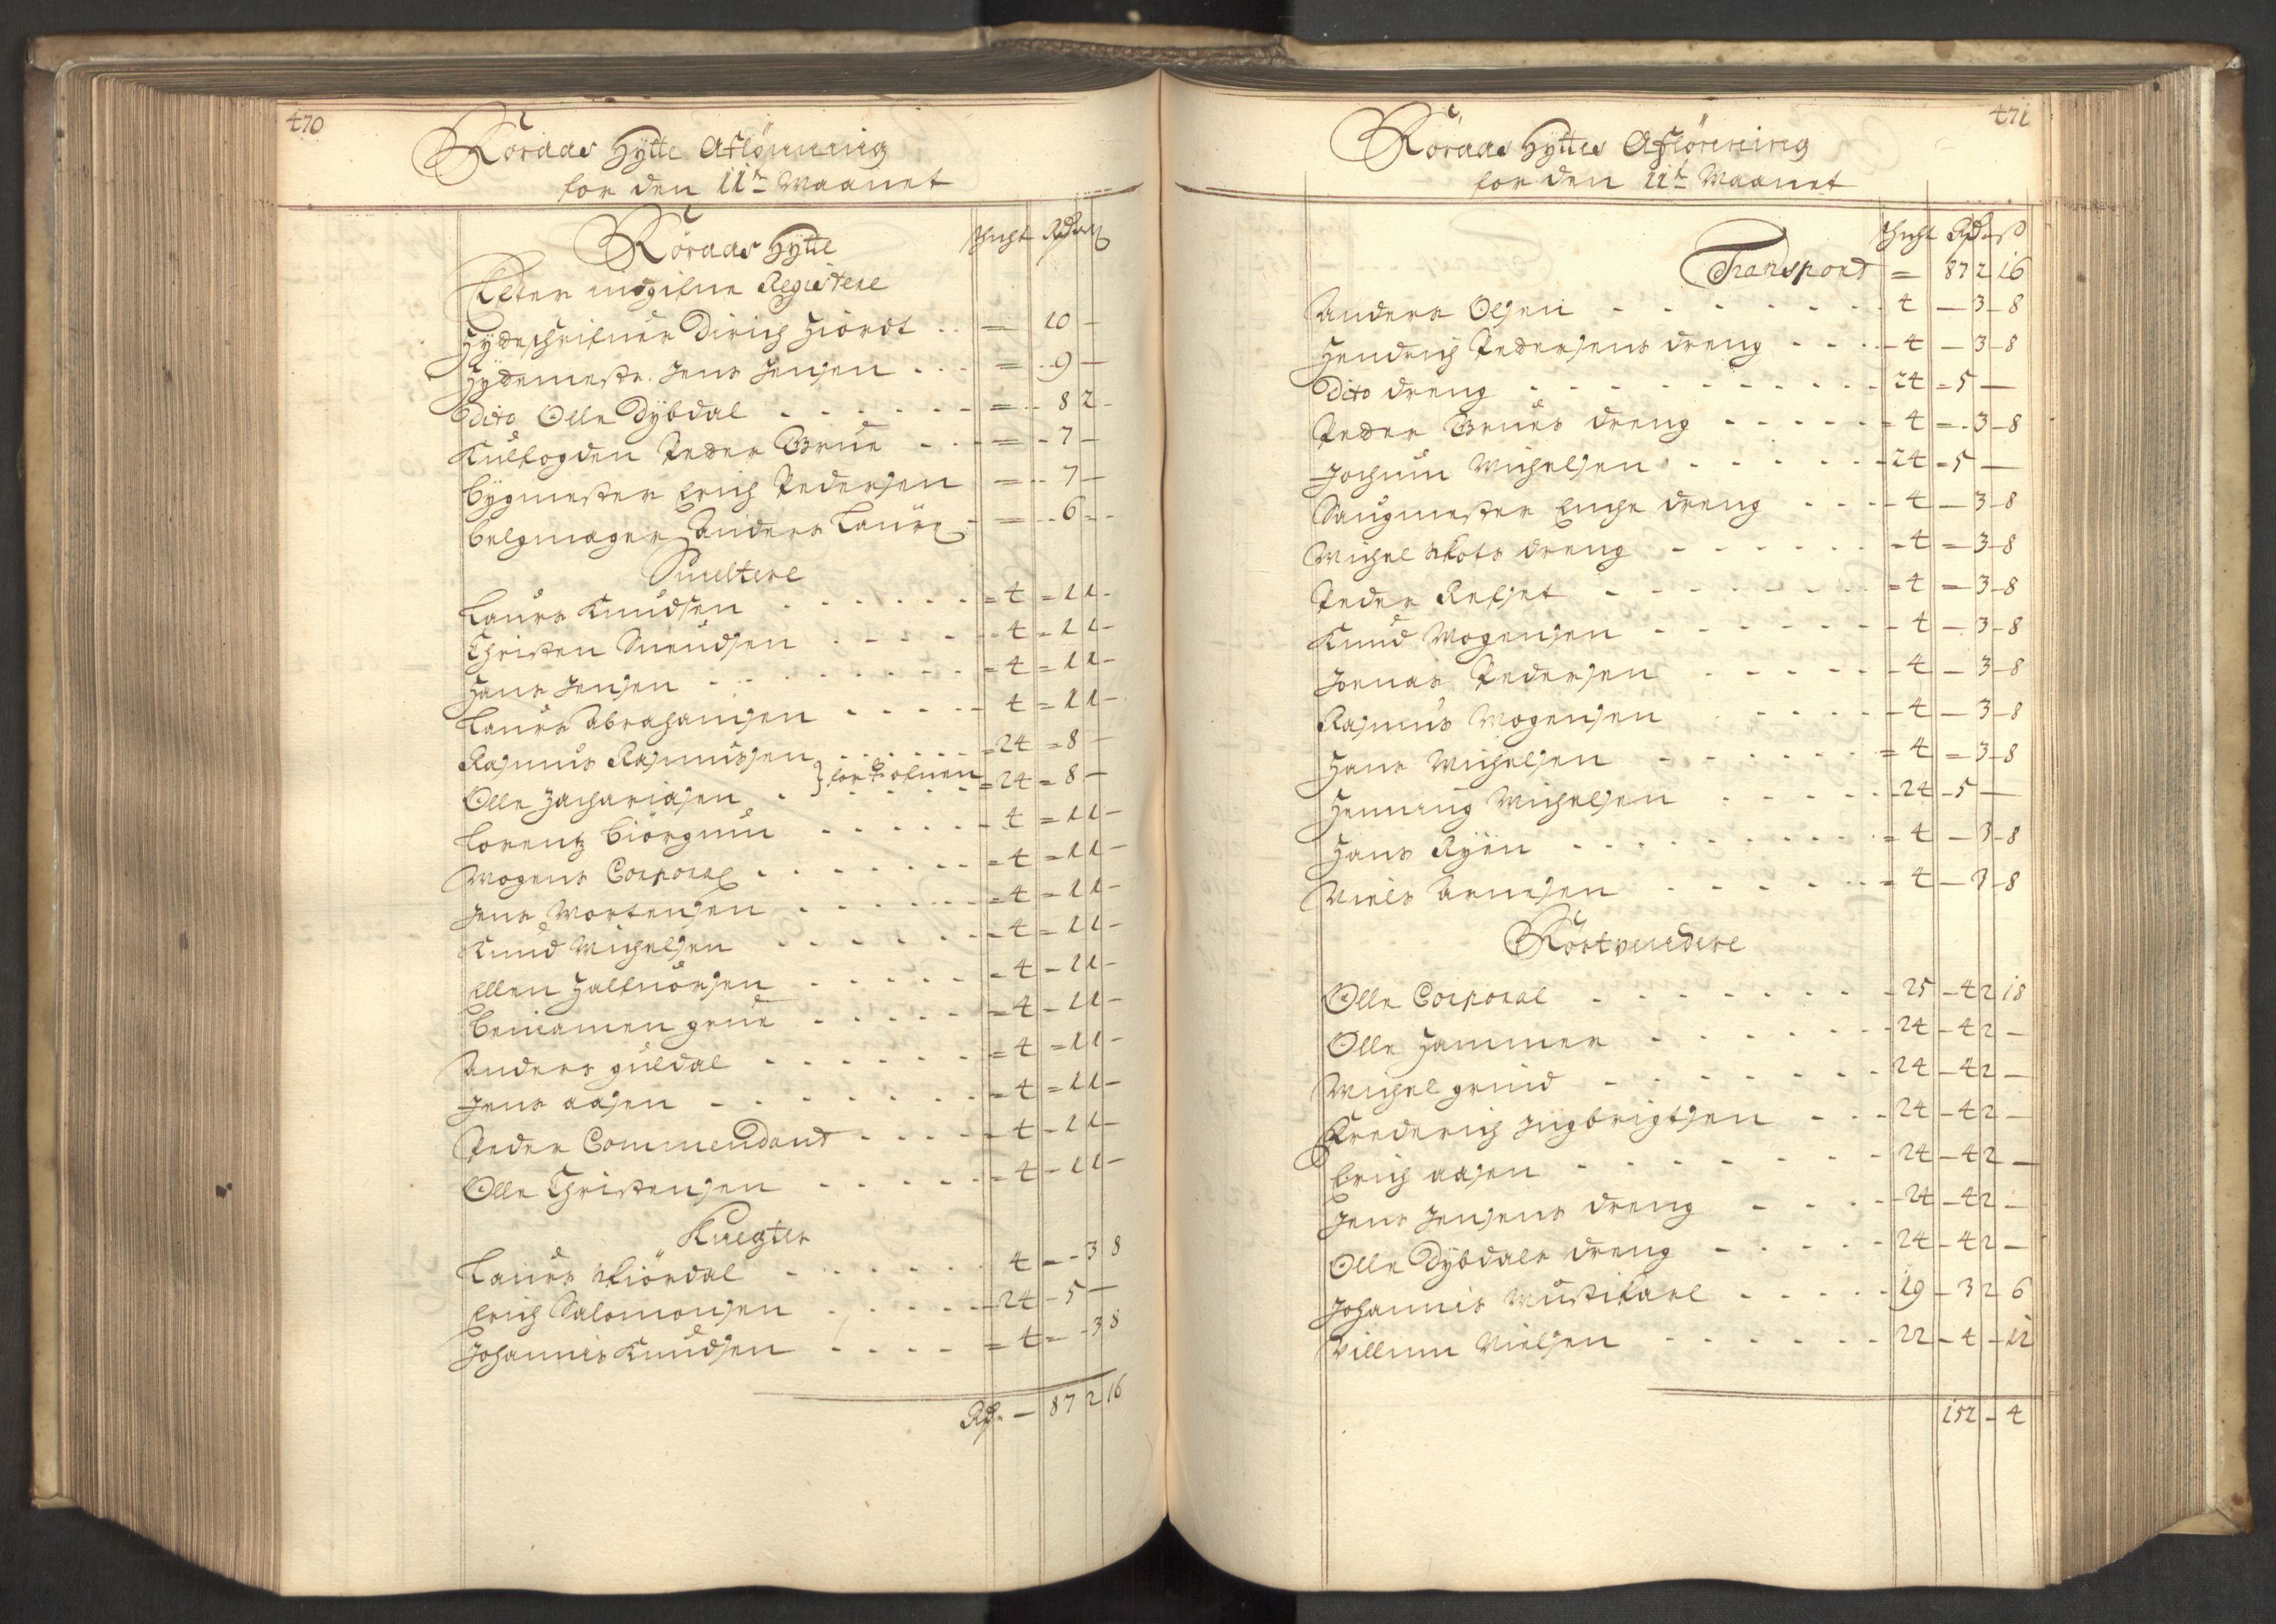 470
Röraas Hytte Aflönning
for den 11te Maanet
Röraas Hytte
Efter mogifne Registere
Hydeschrifuer Dirich Hiordt . . = 10 –
Hydemestr. Jens Jensen . . . = . . 9 –
Dito Olle Dybdal . . . . . . = . . 8 2 –
Kulfogden Peder Brue . . . = – 7 –
bygmester Erich Pedersen = – . 7 –
belgmager Anders Laurs – = . . 6 = –
Smeltere
Laurs Knudsen . . . . . . = 4 = 11 –
Christen Suendsen . . . . . – 4 = 11 –
Hans Jensen . . . . . . . = 4 = 11 –
Laurs Abrahamsen . . . . . 4 = 11 –
Rasmus Rasmussen . . . . . . = 24 = 8 –
Olle Zachariasen . } for ofuen = 24 = 8 –
Lorentz biörgum . . . . . . 4 = 11 –
Mogens Corporal . . . . . . = 4 = 11 –
Jens Mortensen . . . . . . = 4 = 11 –
Knud Michelsen . . . . . . = 4 = 11 –
Ellen Halfuorsen . . . . . – 4 – 11 –
beniamen grue . . . . . = 4 – 11 –
Anders guldal . . . . . . = 4 = 11 –
Jens aasen . . . . . . . = 4 = 11 –
Peder Commendant . . . . – 4 – 11 –
Olle Christensen . . . . . – 4 – 11 –
Knegter
Laurs Stiördal . . . . . . 4 = – 3 8
Erich Salomonsen . . . . . – 24 – 5 –
Johannes Knudsen . . . . = 4 = – 3 8
Rdr. – 87 2 16
471
Röraas Hyttes Aflönning
for den 11te Maanet
Schicht Rdr ß
Transport = 87 2 16
Anders Olsen . . . . . . . 4 – 3 – 8
Hendrich Pedersens dreng . . . – 4 – 3 – 8
Dito dreng . . . . . . . . . 24 = 5 –
Peder Brues dreng . . . . . = 4 = . 3 – 8
Jochum Michelsen . . . . . . – 24 = 5 –
Saugmester dreng . . . – 4 – 3 – 8
Michel Skots dreng . . . . . . = 4 = – 3 – 8
Peder Refset . . . . . . . = 4 = – 3 – 8
Knud Mogensen . . . . . . – 4 – 3 – 8
Jonas Pedersen . . . . . – 4 – 3 – 8
Rasmus Mogensen . . . . . – 4 – 3 – 8
Hans Michelsen . . . . . . = 4 = – 3 – 8
Henning Michelsen . . . . . – 24 – 5 –
Hans Ryen . . . . . . . . = 4 – 3 – 8
Niels Arnesen . . . . . . = 4 – 3 – 8
Röstvendere
Olle Corporal . . . . . . . – 25 – 4 2 18
Olle Hammer . . . . . . – 24 – 4 2 –
Michel grind . . . . . . . – 24 – 4 2 –
Frederich Ingbrigtsen . . . – 24 – 4 2 –
Erich aasen . . . . . . . – 24 – 4 2 –
Jens Jensens dreng . . . . – 24 – 4 2 –
Olle Dybdals dreng . . . . . – 24 – 4 2 –
Johannis Mustikarl . . . . . – 19 – 3 2 6
Villum Nielsen . . . . . . – 22 – 4 – 12
152 – 4